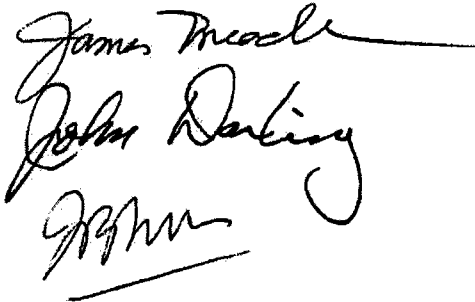 James Meade
John Darling